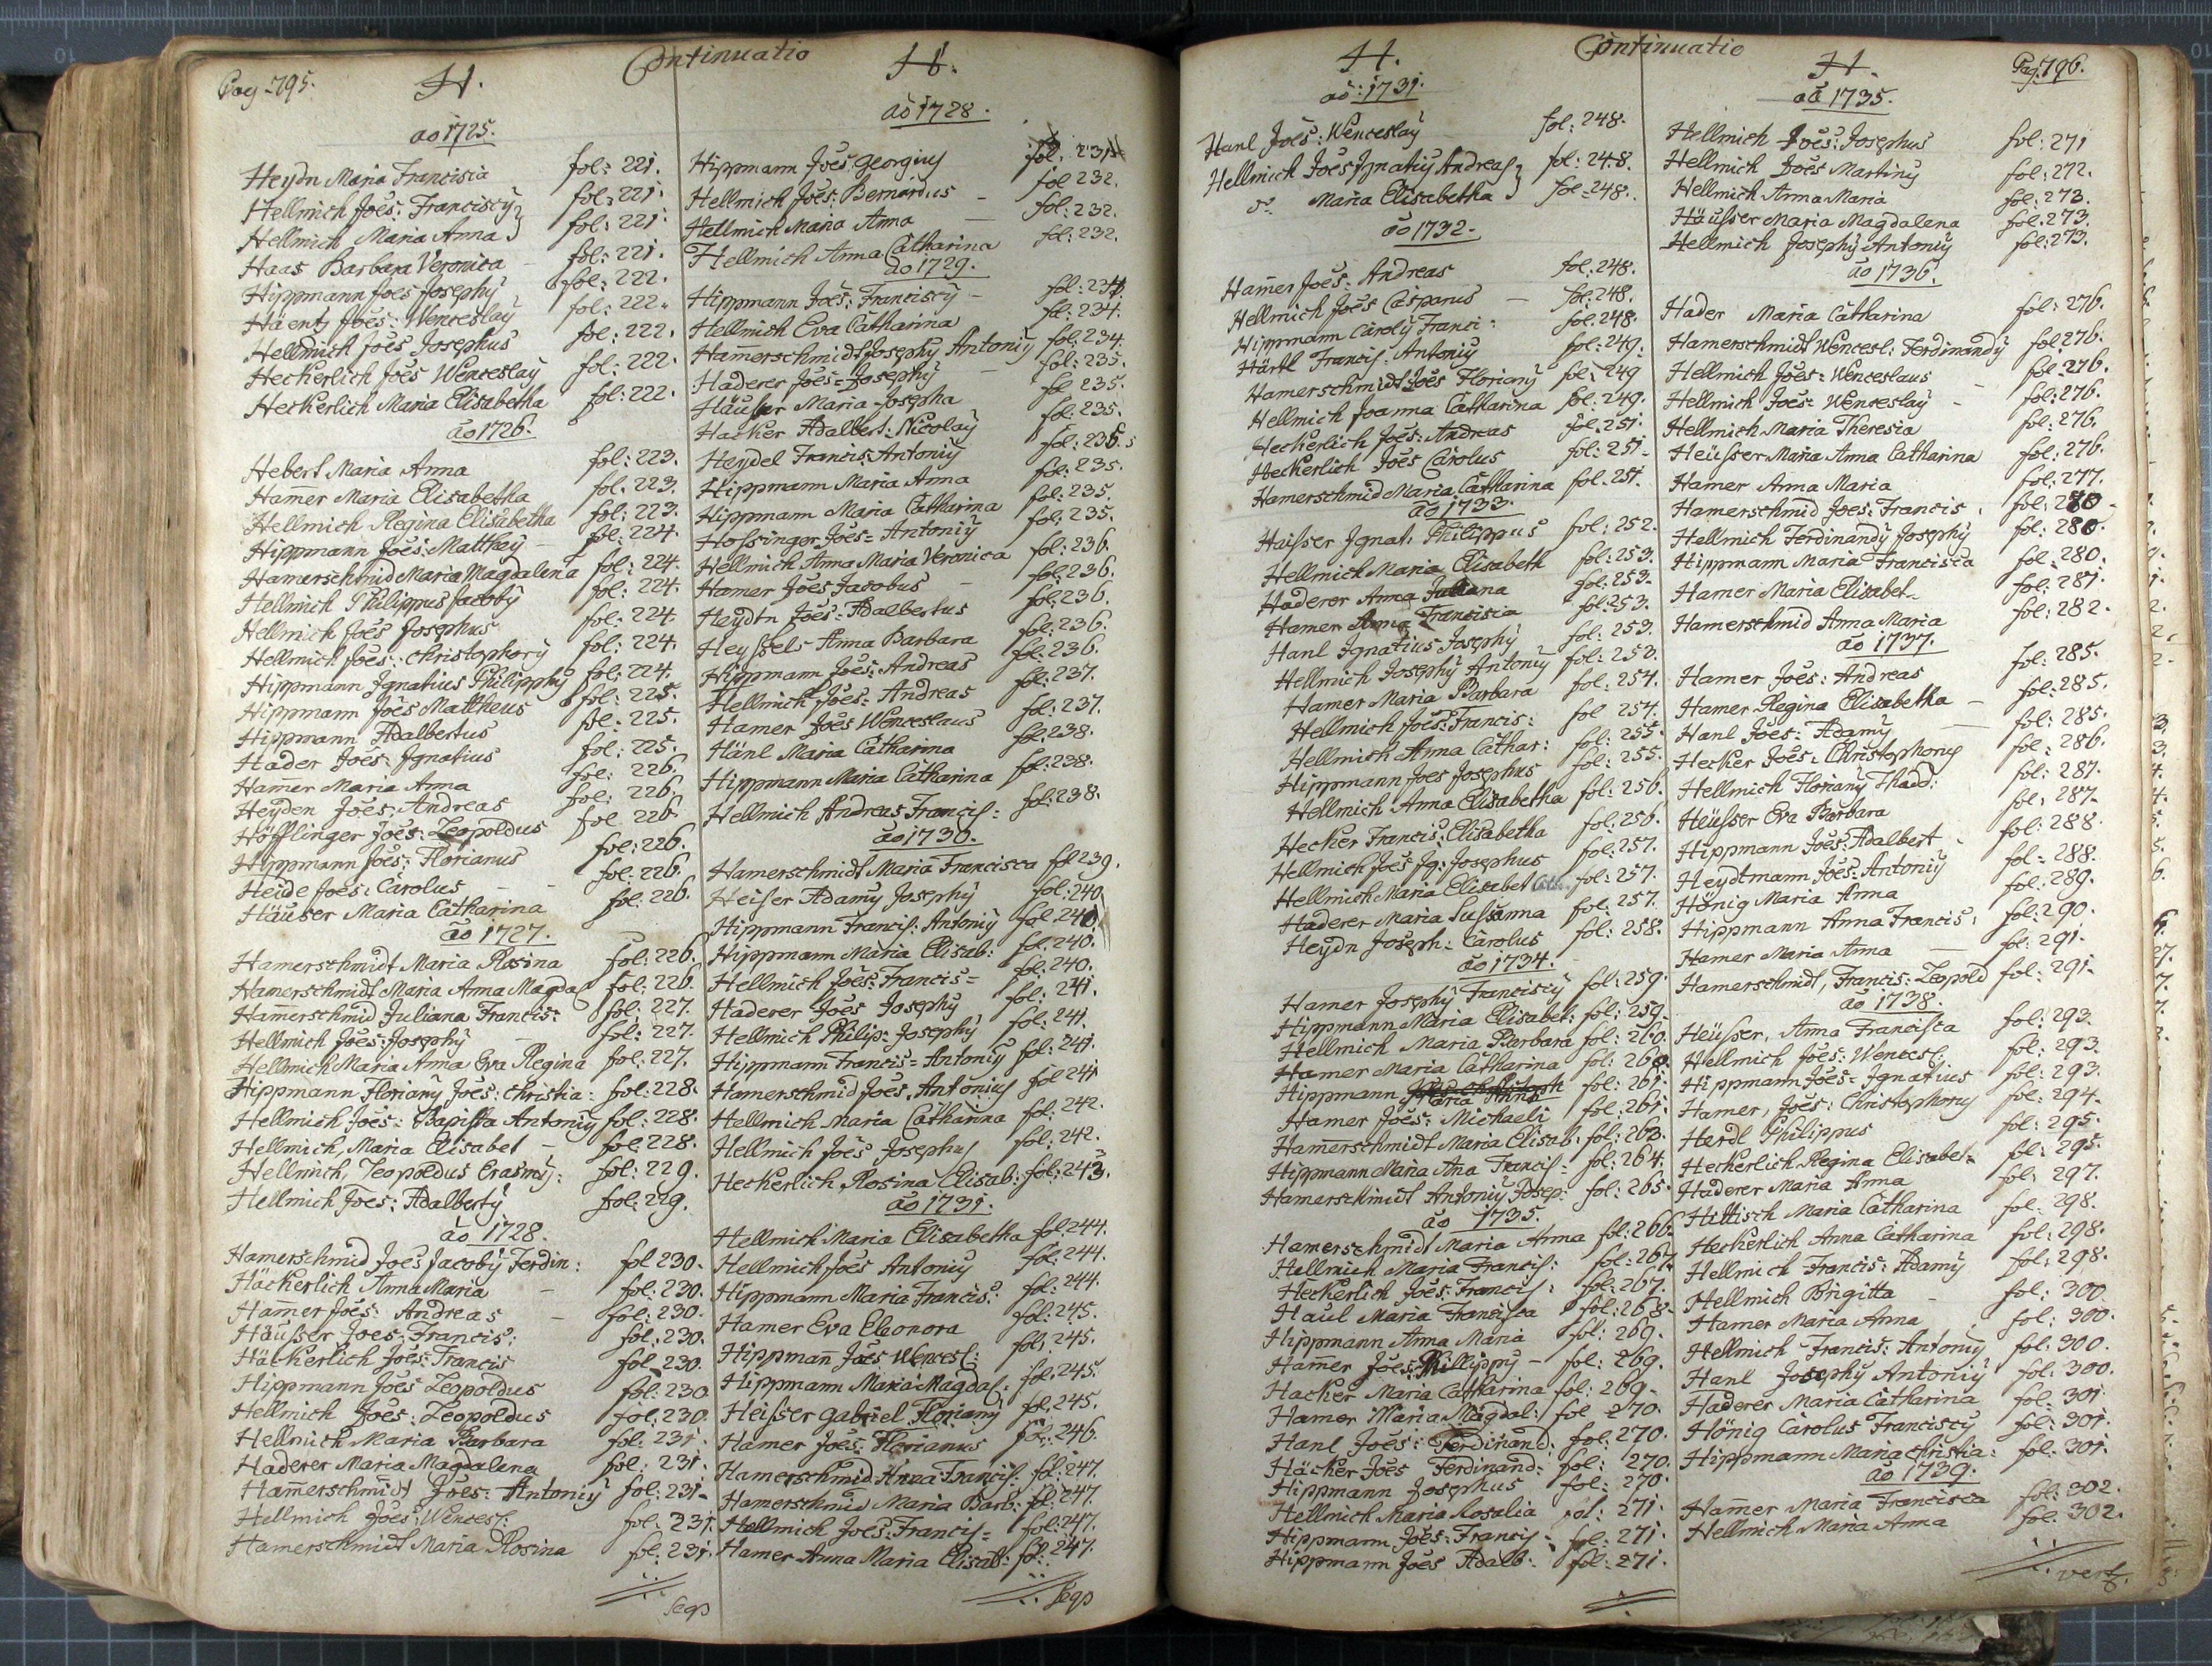 Pag. 795.
Continuatio
H.
ao 1725.
Heÿdn Maria Francisia fol: 221.
Hellmich Joēs: Franciscÿ fol: 221.
Hellmich Maria Anna fol: 221.
Haas Barbara Veronica - fol: 221.
Hippmann Joēs Josephÿ fol: 222.
Häentz Joēs: Wenceslaÿ fol: 222.
Hellmich Joēs Josephus fol: 222.
Heckerlich Joēs Wenceslaÿ fol: 222.
Heckerlich Maria Elisabetha fol: 222.
ao 1726.
Hebert Maria Anna fol: 223.
Hamer Maria Elisabetha fol: 223.
Hellmich Regina Elisabetha fol: 223.
Hippmann Joēs: Matthey - fol: 224.
Hamerschmid Maria Magdalena fol: 224.
Hellmich Philippus Jacobÿ fol: 224.
Hellmich Joēs Josephus fol: 224.
Hellmich Joēs: Christophorÿ fol: 224.
Hippmann Ignatius Philipphÿ fol: 224.
Hippmann Joēs Mattheus fol: 225.
Hippmann Adalbertus fol: 225.
Hader Joēs: Ignatius fol: 225.
Ham̄er Maria Anna fol: 226.
Heyden Joēs: Andreas fol: 226.
Höfflinger Joēs: Leopoldus fol 226.
Hippmann Joēs: Florianus fol: 226.
Heide Joēs: Carolus - - fol: 226.
Häuser Maria Catharina fol: 226.
ao 1727.
Hamerschmidt Maria Rosina fol: 226.
Hamerschmidt Maria Anna Magda fol: 226.
Hamerschmid Juliana Francis: fol: 227.
Hellmich Joēs: Josephÿ - fol: 227.
Hellmich Maria Anna Eva Regina fol: 227.
Hippmann Florianÿ Joēs: Christia: fol: 228.
Hellmich Joēs: Bapista Antoniÿ fol: 228.
Hellmich, Maria Elisabet - fol: 228.
Hellmich, Leopoldus Erasmÿ: fol: 229.
Hellmich Joēs: Adalbertÿ fol: 229.
ao 1728.
Hamerschmid Joēs Jacobÿ Ferdin: fol 230.
Häckerlich Anna Maria - fol: 230.
Hamer Joēs: Andreas - fol: 230.
Häusser Joēs: Francis: fol: 230.
Häckerlich Joēs: Francis fol 230.
Hippmann Joēs Leopoldus fol: 230
Hellmich Joēs: Leopoldus fol: 230.
Hellmich Maria Barbara fol: 231.
Haderer Maria Magdalena fol: 231.
Ham̄erschmidt Joēs: Antoniÿ fol: 231.
Hellmich Joēs: Wencesl: fol: 231.
Hamerschmidt Maria Rosina fol: 231.
seqs
H.
ao 1728.
Hippmann Joēs: Georgiuÿ fol: 231
Hellmich Joēs: Bernardus - fol 232.
Hellmich Maria Anna - fol: 232.
Hellmich Anna Catharina fol: 232.
ao 1729.
Hippmann Joēs: Franciscÿ - fol: 234
Hellmich Eva Catharina fol: 234.
Ham̄erschmidt Josephÿ Antoniÿ fol: 234.
Haderer Joēs: Josephÿ - fol: 235.
Häusser Maria Josepha fol 235.
Hacker Adalbert: Nicolaÿ fol: 235.
Heydel Francis: Antoniÿ fol: 235.
Hippmann Maria Anna fol: 235.
Hippmann Maria Catharina fol: 235.
Hossinger Joēs: Antoniÿ fol: 235.
Hellmich Anna Maria Veronica fol: 236.
Hamer Joēs Jacobus - fol: 236.
Heydtn Joēs: Adalbertus fol: 236.
Heyssels Anna Barbara fol: 236.
Hippmann Joēs: Andreas fol: 236.
Hellmich Joēs: Andreas fol: 237.
Hamer Joēs Wenceslaus fol: 237.
Hänl Maria Catharina fol: 238.
Hippmann Maria Catharina fol: 238.
Hellmich Andreas Francis: fol: 238.
ao 1730.
Hamerschmidt Maria Francisca fol 239.
Heiser Adamÿ Josephÿ fol: 240
Hippmann Francis: Antoniÿ fol 240.
Hippmann Maria Elisab: fol: 240.
Hellmich Joēs: Francis: fol: 240.
Haderer Joēs Josephÿ fol: 241.
Hellmich Philip: Josephÿ fol: 241.
Hippmann Francis: Antoniÿ fol: 241.
Hamerschmid Joēs Antoniuÿ fol 241
Hellmich Maria Catharina fol: 242.
Hellmich Joēs Josephuÿ fol: 242.
Heckerlich Rosina Elisab: fol: 243.
ao 1731.
Hellmich Maria Elisabetha fol 244.
Hellmich Joēs Antoniÿ fol: 244.
Hippmann Maria Francis: fol: 244.
Hamer Eva Eleonora fol: 245.
Hippmañ Joēs Wencesl: fol: 245.
Hippmann Maria Magdal: fol: 245.
Heisser Gabriel Florianÿ fol: 245.
Hamer Joēs: Florianus fol: 246.
Hamerschmid Anna Francis: fol: 247.
Hamerschmid Maria Barb: fol: 247.
Hellmich Joēs: Francis: fol: 247.
Hamer Anna Maria Elisab: fol: 247.
seqs
Continuatio
Pag: 796.
H.
ao: 1731.
Hanl Joēs: Wenceslaÿ fol: 248.
Hellmich Joēs Ignatiÿ Andreas fol: 248.
Maria Elisabetha fol: 248.
ao 1732.
Ham̄er Joēs: Andreas fol: 248.
Hellmich Joēs Casparus - fol: 248.
Hippmann Carolÿ Franci: fol: 248.
Härtl Francis: Antoniÿ fol: 249.
Hamerschmidt Joēs Florianÿ fol: 249
Hellmich Joanna Catharina fol: 249.
Heckerlich Joēs: Andreas fol: 251.
Heckerlich Joēs Carolus fol: 251.
Hamerschmid Maria Catharina fol. 251.
ao 1733.
Haisser Ignat: Philippus fol: 252.
Hellmich Maria Elisabeth fol: 253.
Haderer Anna Juliana fol: 253.
Hamer Anna Francisia fol: 253.
Hanl Ignatius Josephÿ fol: 253.
Hellmich Josephÿ Antoniÿ fol: 253.
Hamer Maria Barbara fol: 254.
Hellmich Joēs: Francis: fol 254.
Hellmich Anna Cathar: fol: 255.
Hippmann Joes Josephus fol: 255.
Hellmich Anna Elisabetha fol: 256.
Hecker Francis: Elisabetha fol: 256.
Hellmich Joēs Jg: Josephus fol: 257.
Hellmich Maria Elisabet fol: 257.
Haderer Maria Sussanna fol: 257.
Heydn Joseph: Carolus fol: 258.
ao 1734.
Hamer Josephÿ Franciscÿ fol: 259.
Hippmann Maria Elisabet: fol: 259.
Hellmich Maria Barbara fol: 260.
Hamer Maria Catharina fol: 260.
Hippmann Maria Anna fol: 261.
Hamer Joēs: Michaeli fol: 261.
Ham̄erschmidt Maria Elisab: fol: 263.
Hippmann Maria Ana Francis: fol: 264.
Hamerschmidt Antoniÿ Josep: fol: 265.
ao 1735.
Hamerschmidt Maria Anna fol: 266.
Hellmich Maria Francis: fol: 267.
Heckerlich Joēs: Francis: fol: 267.
Haul Maria Francisca fol: 268.
Hippmann Anna Maria fol: 269.
Ham̄er Joēs: Phillippÿ - fol: 269.
Hacker Maria Catharina fol: 269.
Hamer Maria Magdal: fol 270.
Hanl Joēs: Ferdinand: fol: 270.
Häcker Joēs Ferdinand: fol: 270.
Hippmann Josephus fol: 270.
Hellmich Maria Rosalia fol: 271.
Hippmann Joēs: Francis: fol: 271.
Hippmann Joēs Adalb: fol: 271.
H.
ao 1735.
Hellmich Joēs: Josephus fol: 271
Hellmich Joēs Martinÿ fol: 272.
Hellmich Anna Maria fol: 273.
Häusser Maria Magdalena fol: 273.
Hellmich Josephÿ Antoniÿ fol: 273.
ao 1736.
Hader Maria Catharina fol: 276.
Hamerschmidt Wencesl: Ferdinandÿ fol 276.
Hellmich Joēs: Wenceslaus - fol: 276.
Hellmich Joēs: Wenceslaÿ - fol: 276.
Hellmich Maria Theresia fol: 276.
Heüsser Maria Anna Catharina fol: 276.
Hamer Anna Maria fol: 277.
Hamerschmid Joēs: Francis: fol: 280.
Hellmich Ferdinandÿ Josephÿ fol: 280.
Hippmann Maria Francisca fol: 280.
Hamer Maria Elisabet fol: 281.
Hamerschmid Anna Maria fol: 282.
ao 1737.
Hamer Joēs: Andreas fol: 285.
Hamer Regina Elisabetha - fol: 285.
Hanl Joēs: Adamÿ - fol: 285.
Hecker Joēs: Christophorÿ fol: 286.
Hellmich Florianÿ Thadd: fol: 287.
Heüsser Eva Barbara fol: 287.
Hippmann Joēs: Adalbert - fol: 288.
Heydtmann Joēs: Antoniÿ fol: 288.
Hönig Maria Anna fol: 289.
Hippmann Anna Francis: fol: 290.
Hamer Maria Anna - fol: 291.
Hamerschmidt, Francis: Leopold fol: 291.
ao 1738.
Heüsser, Anna Francisca fol: 293.
Hellmich Joēs: Wencesl: fol: 293.
Hippmann Joēs: Ignatius fol: 293.
Hamer, Joēs: Christophorÿ fol: 294.
Herdl Philippus fol: 295.
Heckerlich Regina Elisabet: fol: 295.
Haderer Maria Anna fol: 297.
Hittisch Maria Catharina fol: 298.
Heckerlich Anna Catharina fol: 298.
Hellmich Francis: Adamÿ fol: 298.
Hellmich Brigitta - fol: 300.
Hamer Maria Anna fol: 300.
Hellmich Francis: Antoniÿ fol: 300.
Hanl Josephÿ Antoniÿ fol: 300.
Haderer Maria Catharina fol: 301.
Hönig Carolus Franciscÿ fol: 301.
Hippmann Maria Christia: fol: 301.
ao 1739.
Ham̄er Maria Francisca fol: 302.
Hellmich Maria Anna fol: 302.